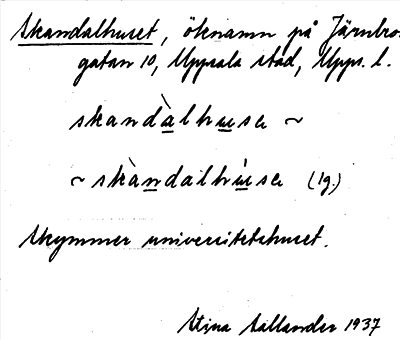 Skandalhuset, öknamn på Järnbro-
gatan 10, Uppsala stad, Upps. l.
skandàlhuse ~
~ skàndalhúse (lg.)
Skymmer universitetshuset.
Stina Sällander 1937